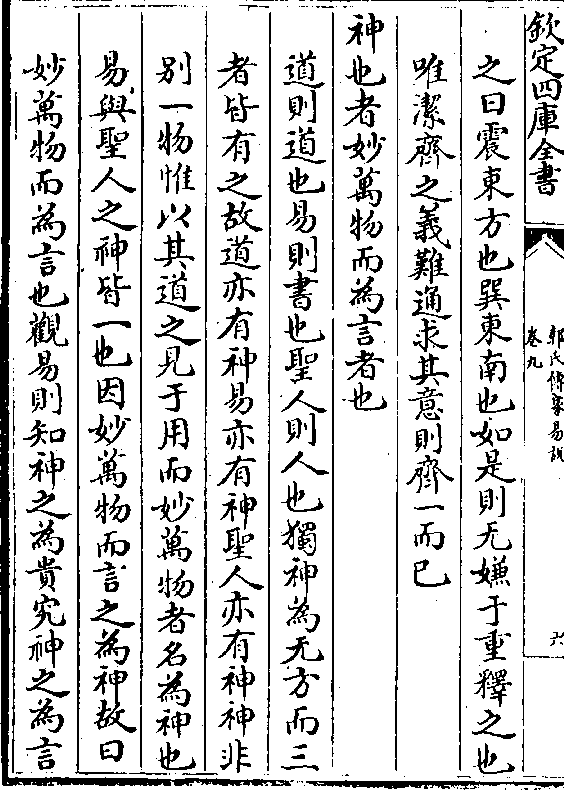 欽定四庫全書
郭氏傳家易說
卷九
六
之曰震東方也巽東南也如是則无嫌于重釋之也
唯潔齊之義難通求其意則齊一而已
神也者妙萬物而為言者也
道則道也易則書也聖人則人也獨神為无方而三
者皆有之故道亦有神易亦有神聖人亦有神神非
別一物惟以其道之見于用而妙萬物者名為神也
易與聖人之神皆一也因妙萬物而言之為神故曰
妙萬物而為言也觀易則知神之為貴究神之為言